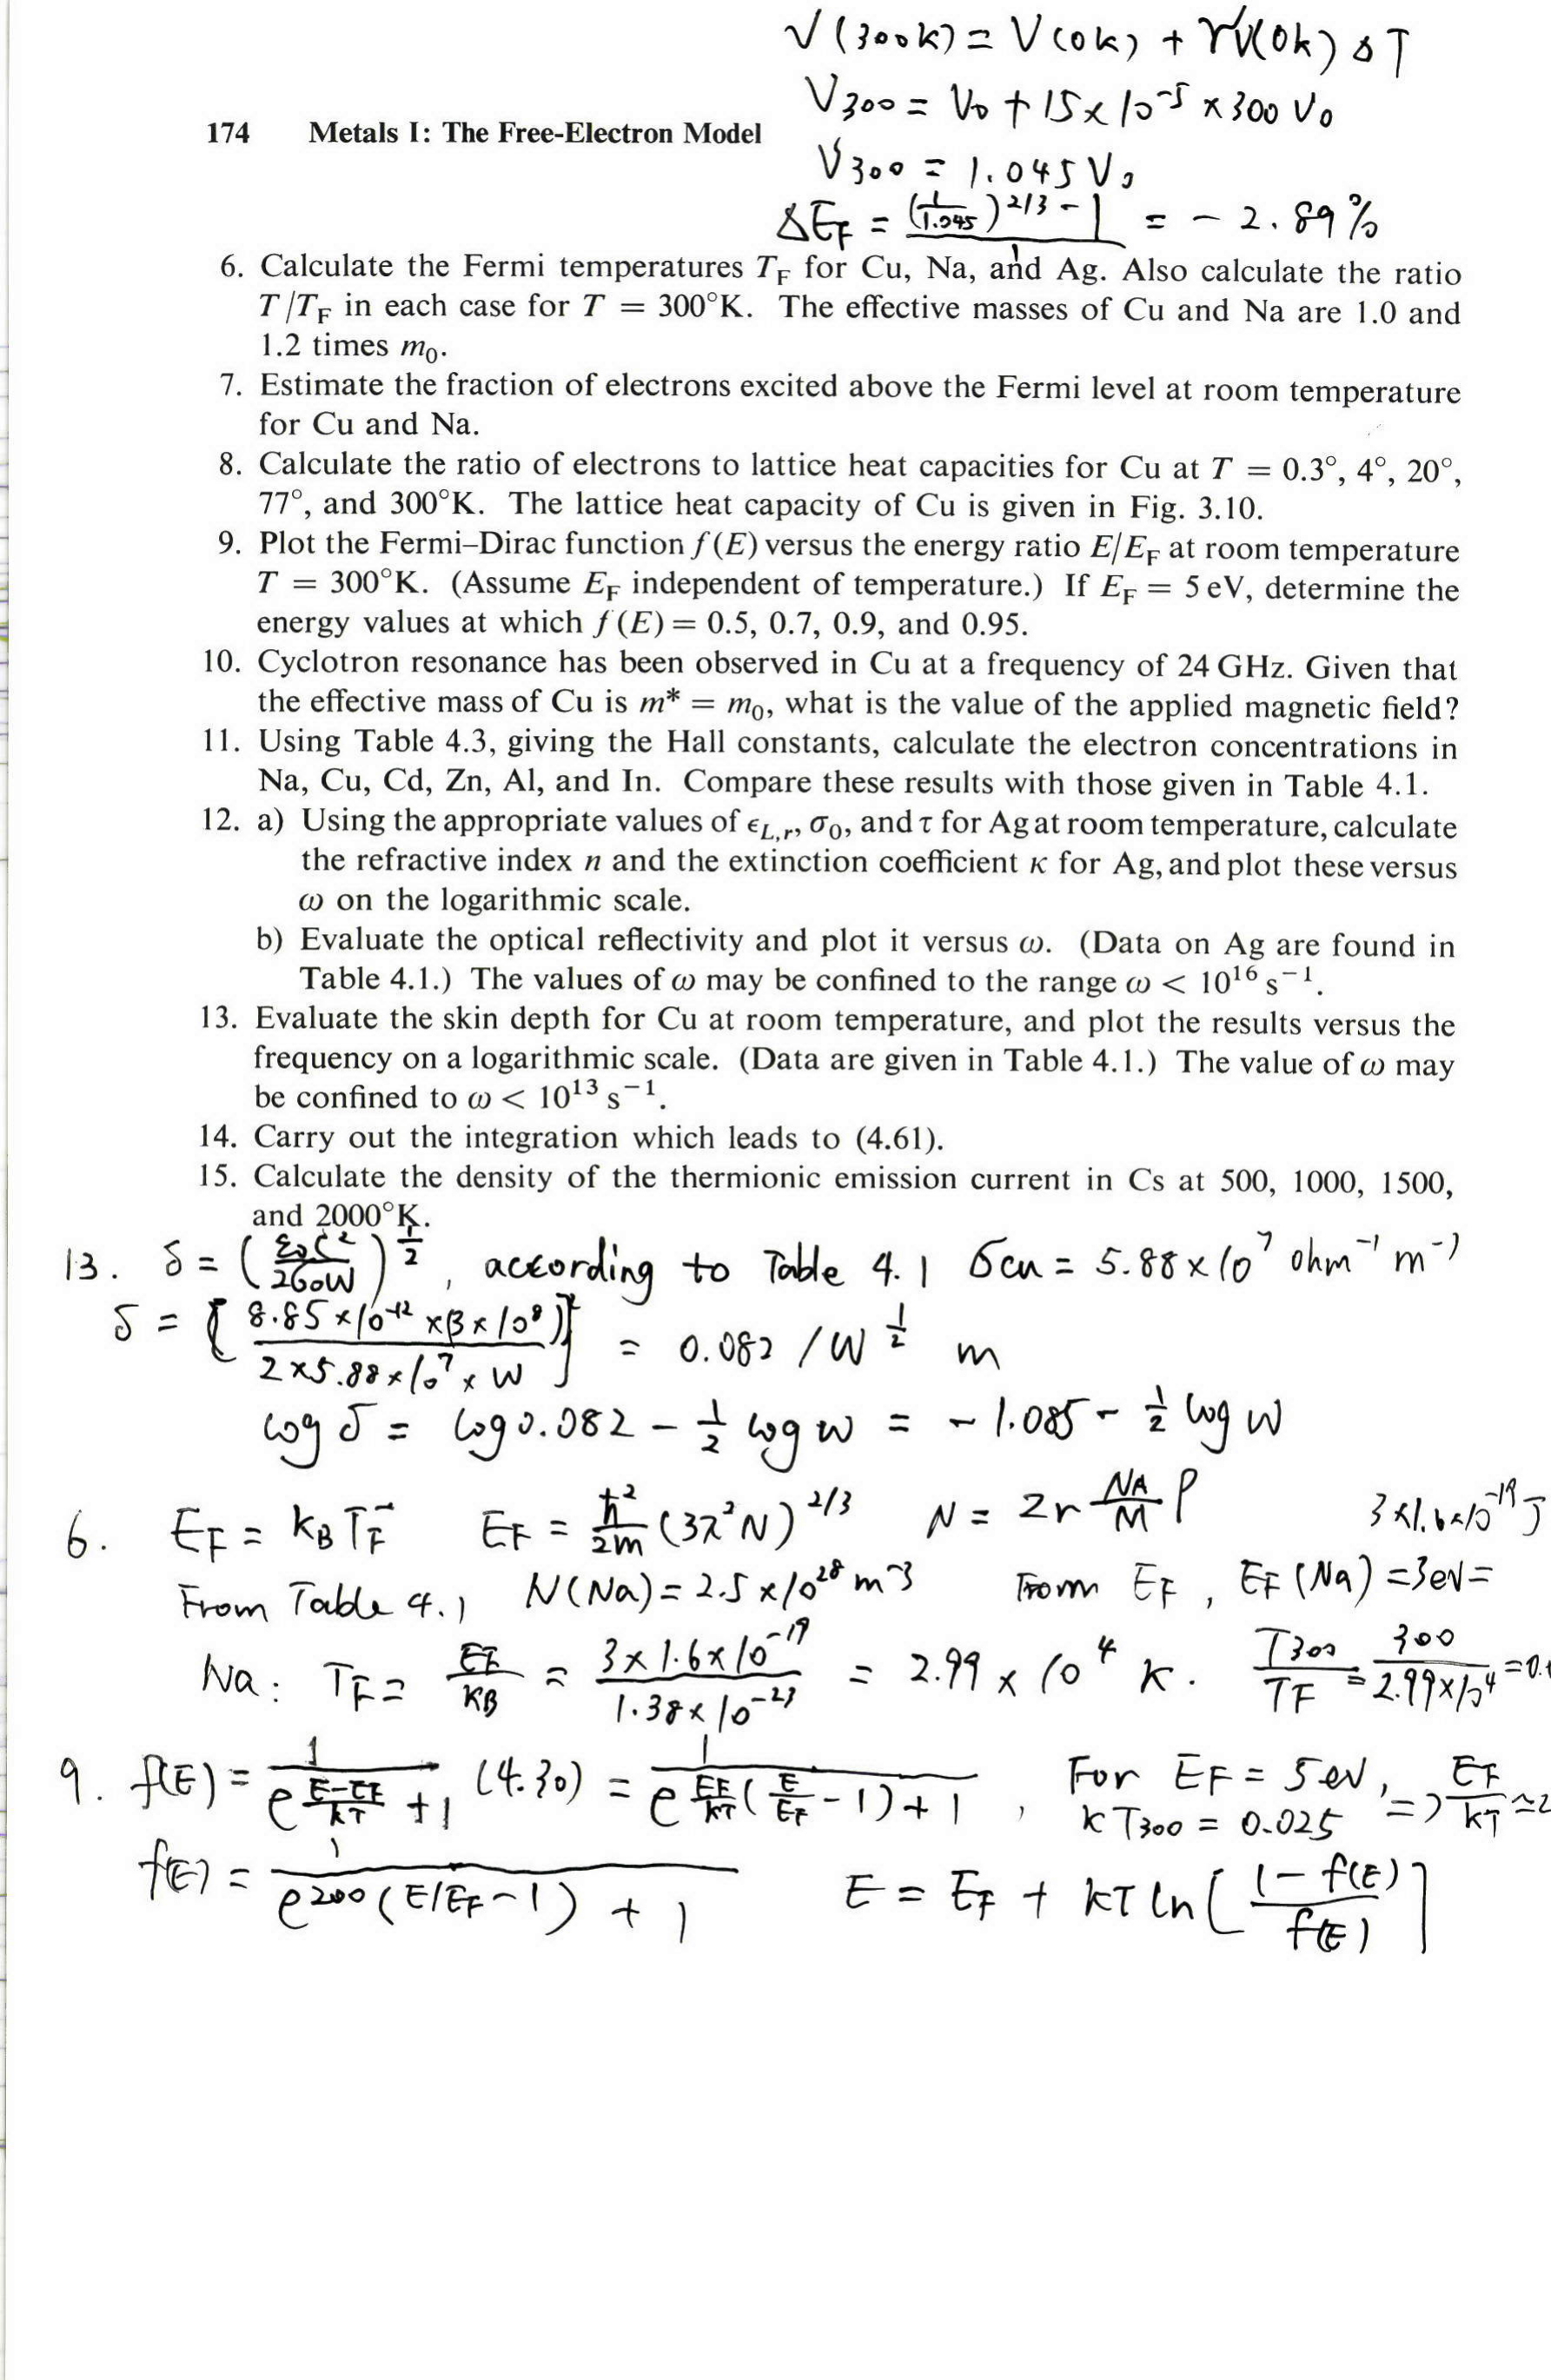 V(300k) = V(0k) + γV(0k) Δ T
V300 = V0 + 15 × 10^-5 × 300 V0
174 Metals I: The Free-Electron Model
V300 = 1.045 V0
ΔEF = ((1/1.045)^2/3 - 1)/1 = - 2.89%
6. Calculate the Fermi temperatures T_F for Cu, Na, and Ag. Also calculate the ratio
T/T_F in each case for T = 300°K. The effective masses of Cu and Na are 1.0 and
1.2 times m_0.
7. Estimate the fraction of electrons excited above the Fermi level at room temperature
for Cu and Na.
8. Calculate the ratio of electrons to lattice heat capacities for Cu at T = 0.3°, 4°, 20°,
77°, and 300°K. The lattice heat capacity of Cu is given in Fig. 3.10.
9. Plot the Fermi–Dirac function f(E) versus the energy ratio E/E_F at room temperature
T = 300°K. (Assume E_F independent of temperature.) If E_F = 5 eV, determine the
energy values at which f(E) = 0.5, 0.7, 0.9, and 0.95.
10. Cyclotron resonance has been observed in Cu at a frequency of 24 GHz. Given that
the effective mass of Cu is m* = m_0, what is the value of the applied magnetic field?
11. Using Table 4.3, giving the Hall constants, calculate the electron concentrations in
Na, Cu, Cd, Zn, Al, and In. Compare these results with those given in Table 4.1.
12. a) Using the appropriate values of ϵ_L,r, σ_0, and τ for Ag at room temperature, calculate
the refractive index n and the extinction coefficient κ for Ag, and plot these versus
ω on the logarithmic scale.
b) Evaluate the optical reflectivity and plot it versus ω. (Data on Ag are found in
Table 4.1.) The values of ω may be confined to the range ω < 10^16 s^-1.
13. Evaluate the skin depth for Cu at room temperature, and plot the results versus the
frequency on a logarithmic scale. (Data are given in Table 4.1.) The value of ω may
be confined to ω < 10^13 s^-1.
14. Carry out the integration which leads to (4.61).
15. Calculate the density of the thermionic emission current in Cs at 500, 1000, 1500,
and 2000°K.
13. δ = (ε0C^2/2σ0W)^1/2, according to Table 4.1 σcu = 5.88×10^7 ohm^-1 m^-1
δ = [8.85×10^-12 × (3×10^8)/2×5.88×10^7 × W]^1/2 = 0.082 / W^1/2 m
log δ = log 0.082 - 1/2 log w = - 1.085 - 1/2 log W
6. EF = kB TF EF = ħ^2/2m (3π^2N)^2/3 N = Zr NA/M ρ 3×1.6×10^-19 J
From Table 4.1, N(Na) = 2.5 ×10^28 m^-3 From EF, EF(Na) = 3eV =
Na: TF = EF/KB = 3×1.6×10^-19/1.38×10^-23 = 2.99 × 10^4 K. T300/TF = 300/2.99×10^4 = 0.
9. f(E) = 1/e^(E-EF/kT) + 1 (4.30) = 1/e^EF/kT(E/EF - 1) + 1, For EF = 5eV, => EF/kT ≃ 2
kT300 = 0.025
f(E) = 1/e^200(E/EF - 1) + 1 E = EF + kT ln[1 - f(E)/f(E)]